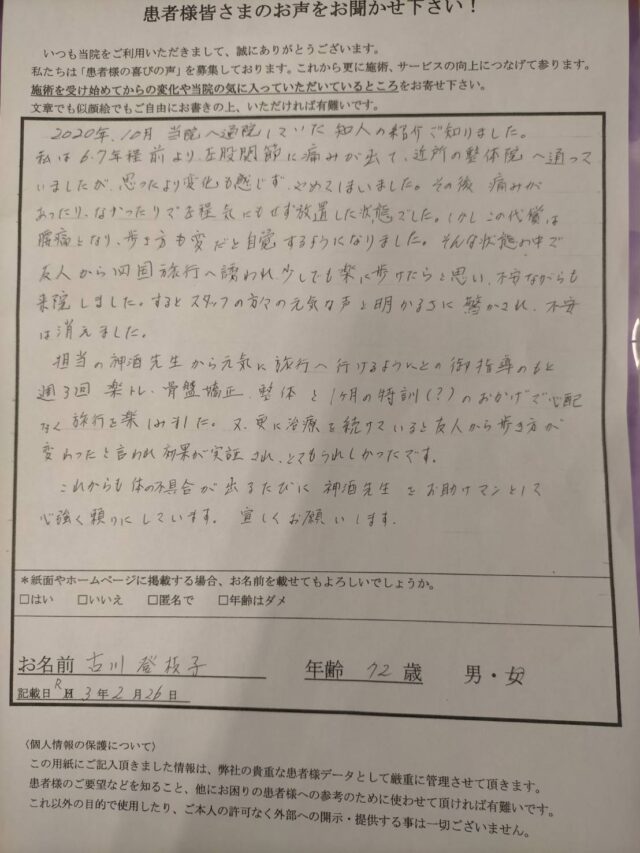 患者様皆さまのお声をお聞かせ下さい！
いつも当院をご利用いただきまして、誠にありがとうございます。
私たちは「患者様の喜びの声」を募集しております。これから更に施術、サービスの向上につなげて参ります。
施術を受け始めてからの変化や当院の気に入っていただいているところをお寄せ下さい。
文章でも似顔絵でもご自由にお書きの上、いただければ有難いです。
2020年、10月 当院へ通院していた 知人の紹介で知りました。
私は6.7年程前より、左股関節に痛みが出て、近所の整体院へ通って
いましたが、思ったより変化も感じず、やめてしまいました。その後 痛みが
あったり、なかったりで 程気にもせず放置した状態でした。しかしこの代償は
腰痛となり、歩き方も変だと自覚するようになりました。そんな状態の中で
友人から四国旅行へ誘われ、少しでも楽に歩けたらと思い、不安ながらも
来院しました。するとスタッフの方々の元気な声と明かるさに驚かされ、不安
は消えました。
担当の神酒先生から元気に旅行へ行けるようにとの御指導のもと
週3回 楽トレ、骨盤矯正、整体と1ヶ月の特訓(?)のおかげで心配
なく旅行を楽しみました。又、更に治療を続けていると友人から歩き方が
変わったと言われ効果が実証され、とてもうれしかったです。
これからも体の不具合が出るたびに 神酒先生をお助けマンとして
心強く頼りにしています。宜しくお願いします。
＊紙面やホームページに掲載する場合、お名前を載せてもよろしいでしょうか。
□はい □いいえ □匿名で □年齢はダメ
お名前 古川 登枝子 年齢 72 歳 男・女
記載日 R 3年2月26日
〈個人情報の保護について〉
この用紙にご記入頂きました情報は、弊社の貴重な患者様データとして厳重に管理させて頂きます。
患者様のご要望などを知ること、他にお困りの患者様への参考のために使わせて頂ければ有難いです。
これ以外の目的で使用したり、ご本人の許可なく外部への開示・提供する事は一切ございません。